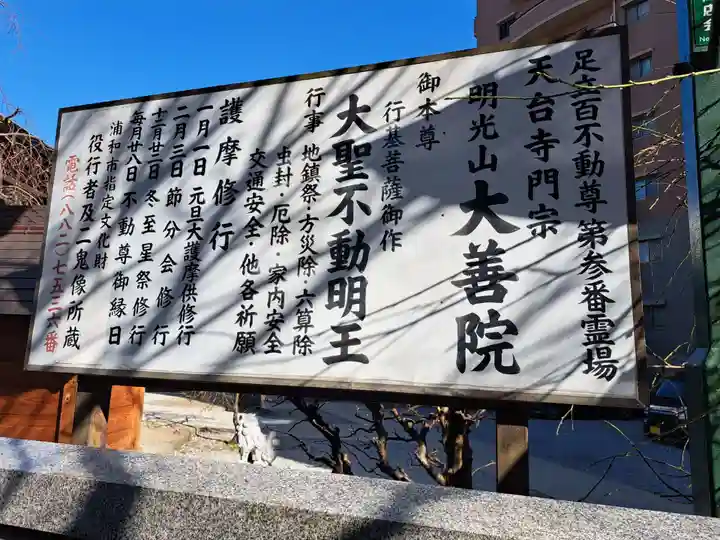 足立百不動尊第参番霊場
天台寺門宗
明光山大善院
御本尊
行基菩薩御作
大聖不動明王
行事 地鎮祭・方災除・六算除
虫封・厄除・家内安全
交通安全・他各祈願
護摩修行
一月一日 元旦大護摩供修行
二月三日 節分会修行
十二月廿二日 冬至星祭修行
毎月廿八日 不動尊御縁日
浦和市指定文化財
役行者及二鬼像所蔵
電話(八八二)七五三六番